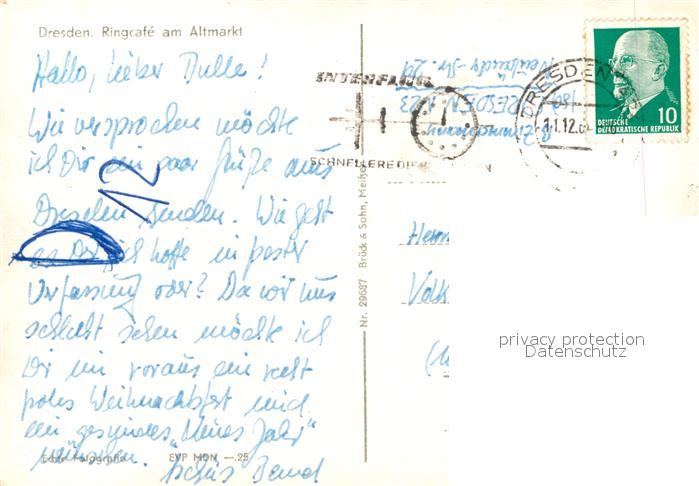 Dresden. Ringcafé am Altmarkt
Hallo, lieber Bulle!
Wie versprochen möchte
ich Dir ein paar Grüße aus
Dresden senden. Wie geht
es Dir, ich hoffe in bester
Verfassung oder? Da wir uns
schlecht sehen möchte ich
Dir im voraus ein recht
frohes Weihnachtsfest und
ein gesundes „Neues Jahr"
wünschen.
Tschüs Bernd
D 12
Echte Fotografie EVP MDN —.25
Nr. 29687 Brück & Sohn, Meißen
INTERFLUG
SCHNELLER
DRESDEN
-1.12.6
DRESDEN A 23
DEUTSCHE
DEMOKRATISCHE REPUBLIK
10
Herrn
Volk
privacy protection
Datenschutz